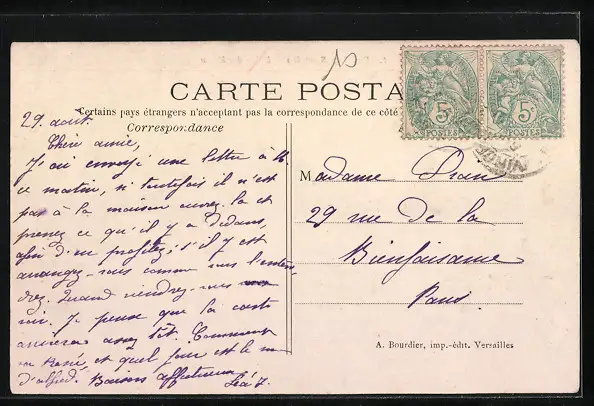 CARTE POSTA
Certains pays étrangers n'acceptant pas la correspondance de ce côté
Correspondance
29 août.
Chère amie,
J'ai envoyé une lettre à M.
ce matin, si toutefois il n'est
pas à la maison ouvrez la et
prenez ce qu'il y a dedans,
afin d'en profiter; s'il y est
arrangez-vous comme vous l'enten
drez. Quand viendrez-vous
Je pense que la carte
arrivera assez tôt. Comment
va René, et quel jour est le
d'alfred. Baisers affectueux
Léa
Madame
29 rue de la
Bienfaisance
Paris.
5
POSTES
5
POSTES
A. Bourdier, imp.-édit. Versailles